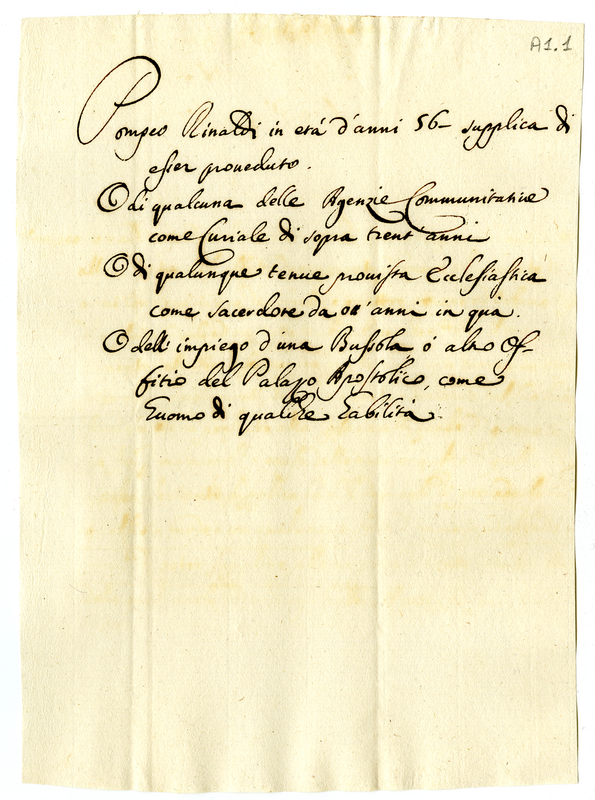 A1.1
Pompeo Rinaldi in età d'anni 56- supplica di
esser proueduto.
O di qualcuna delle Agenzie Communitatiue
come Curiale di sopra trent'anni
O di qualunque tenue prouista Ecclesiastica
come sacerdote da anni in quà.
O dell'impiego d'una Bussola ò altro Of-
fitio del Palazo Apostolico, come
huomo di qualche habilità.